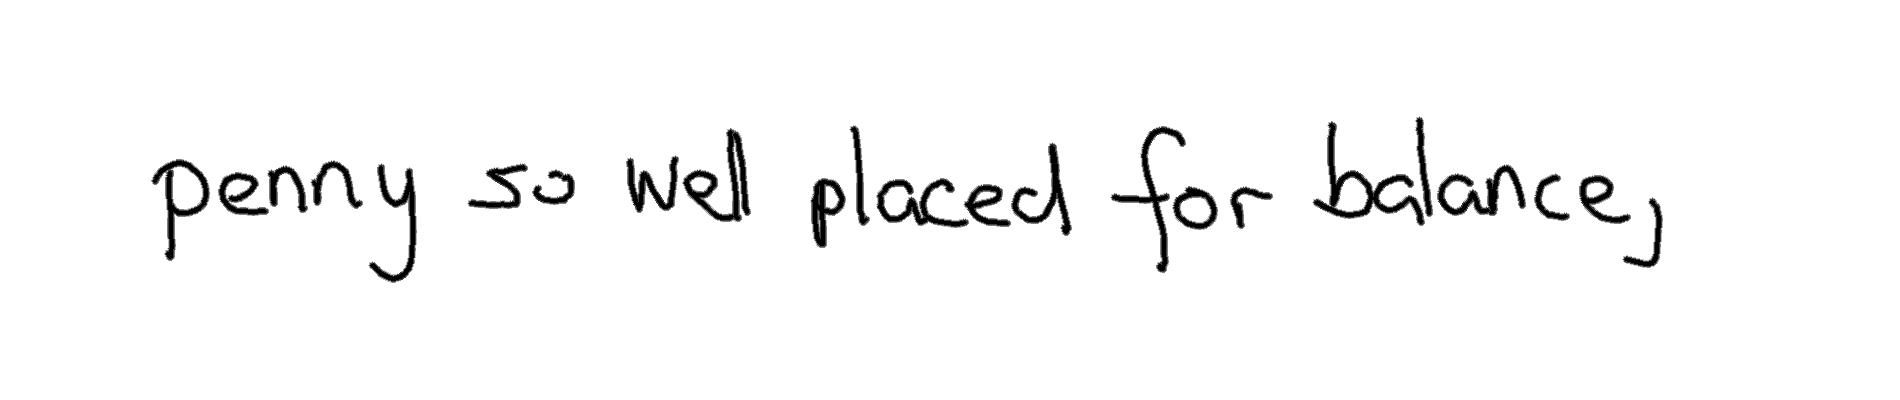 penny so well placed for balance,